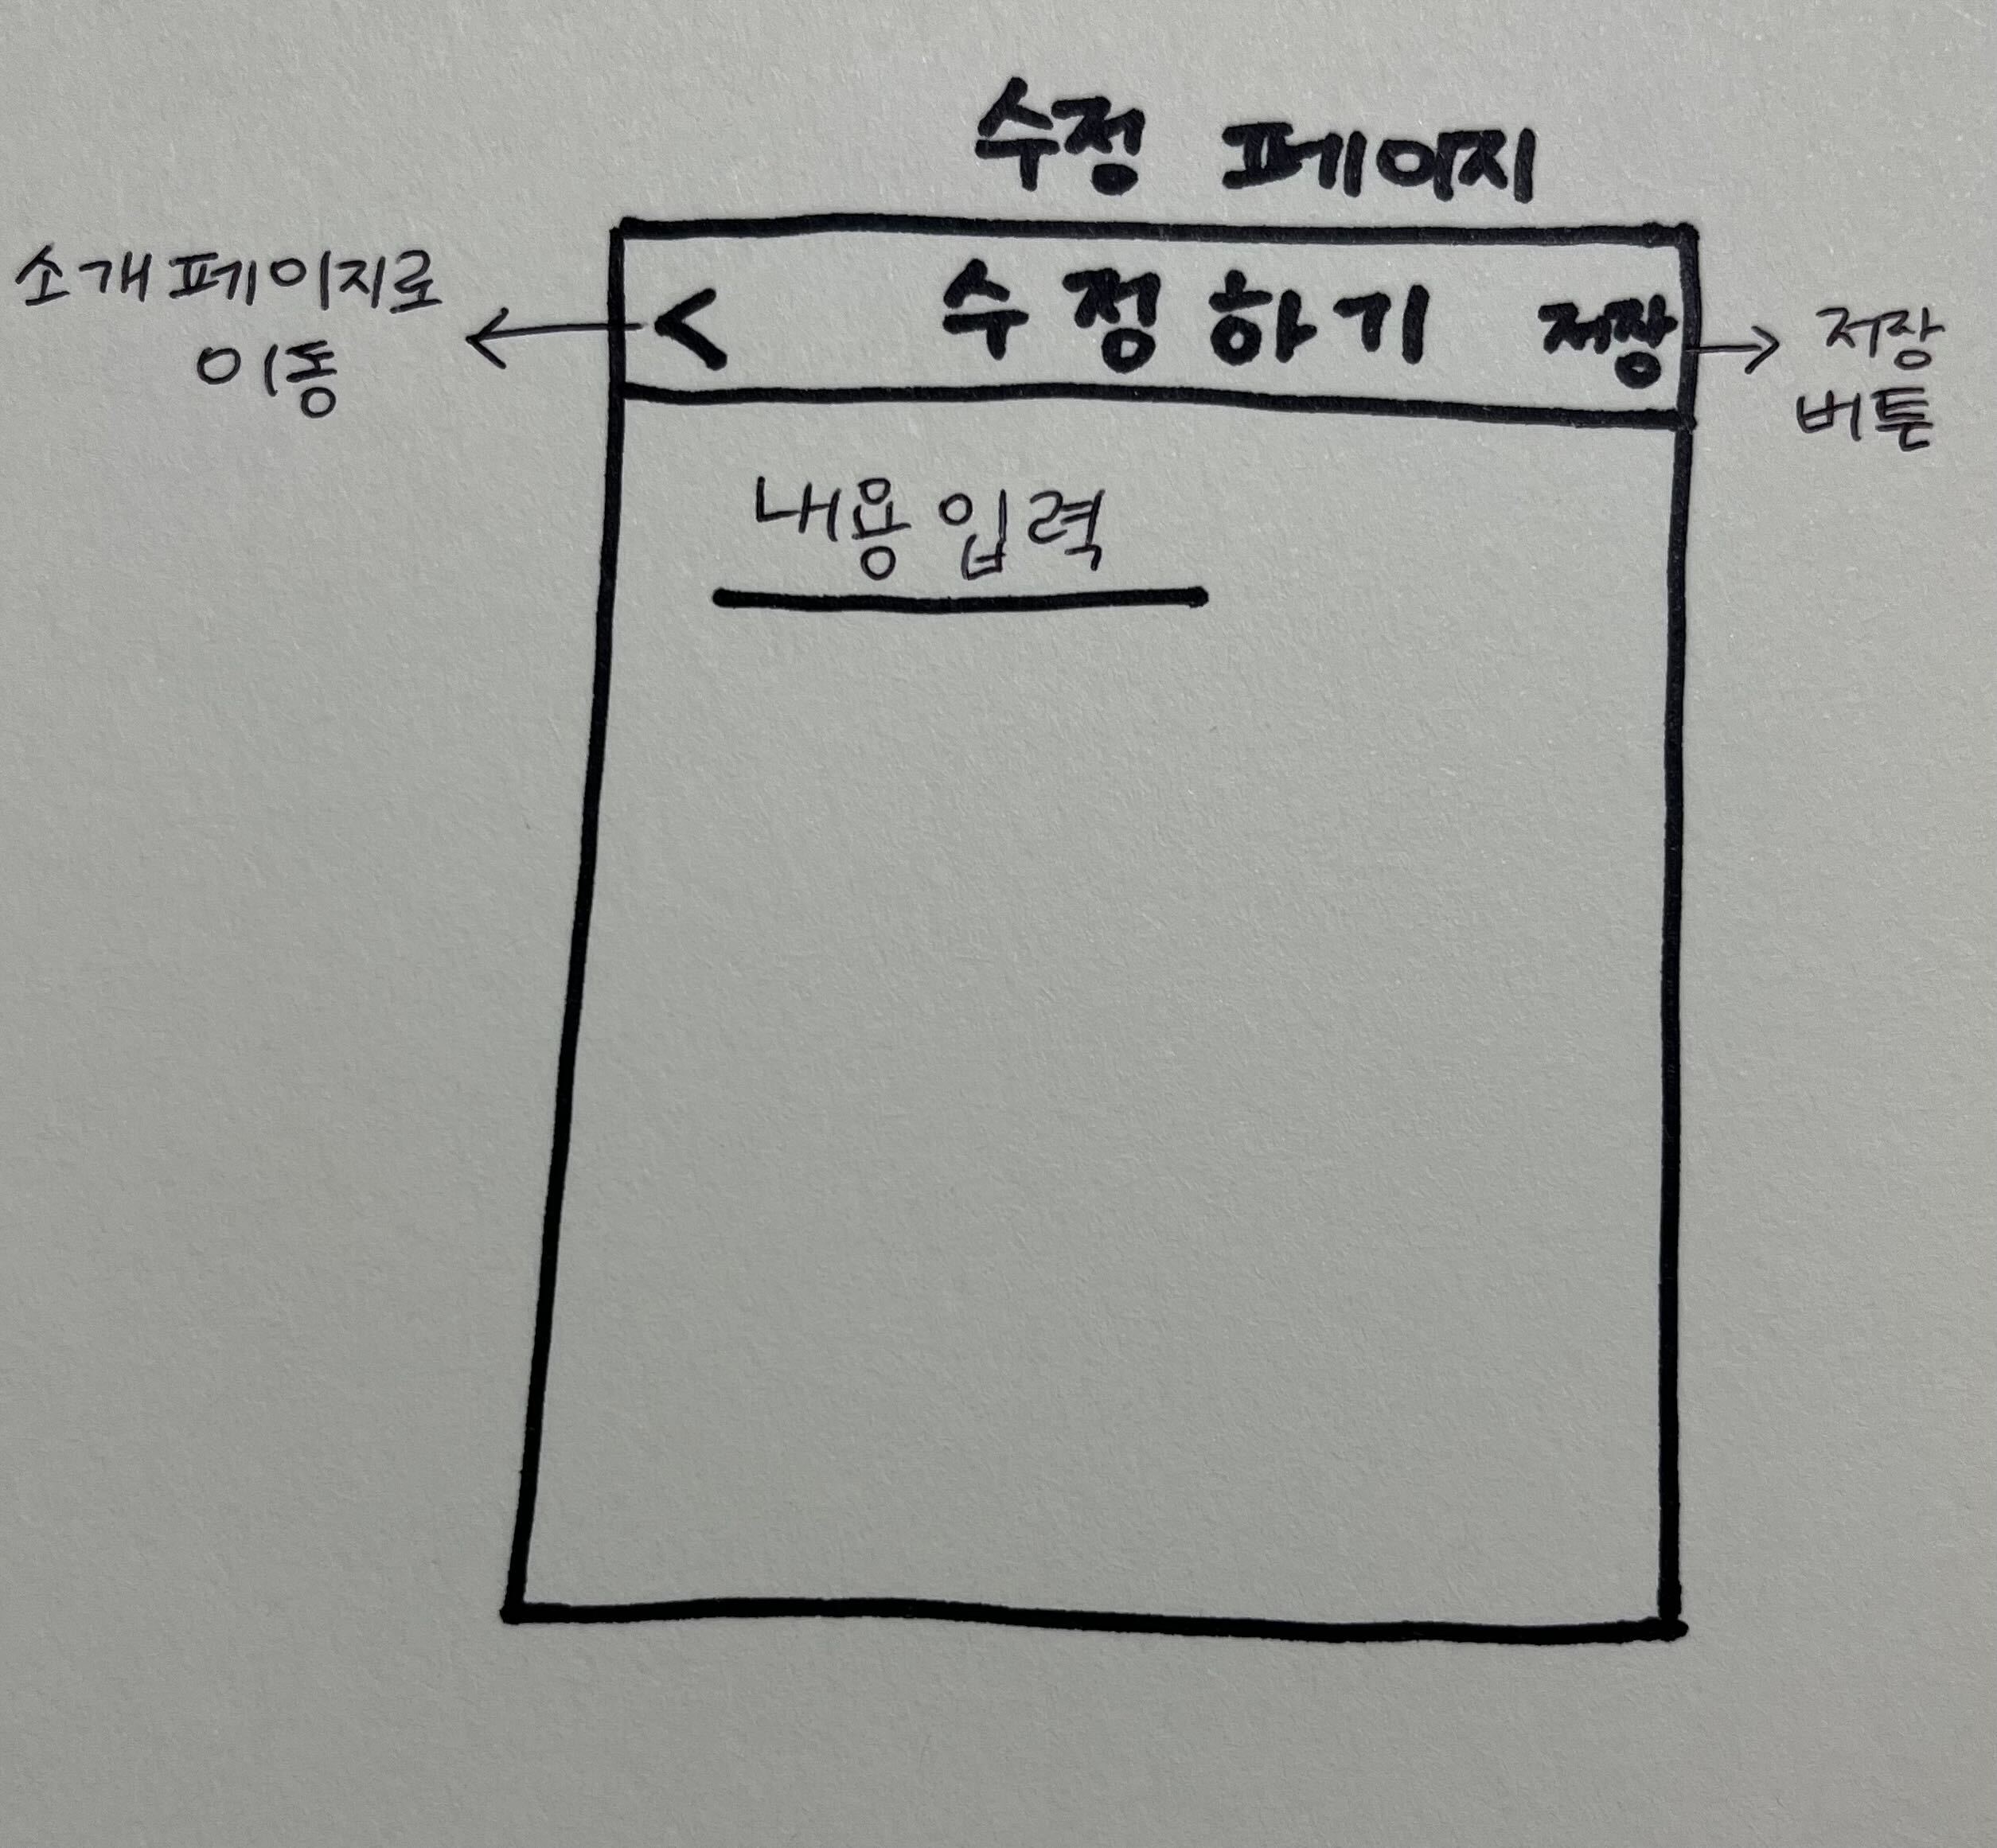 수정 페이지
소개 페이지로
이동
< 수정하기 저장
저장
버튼
내용 입력